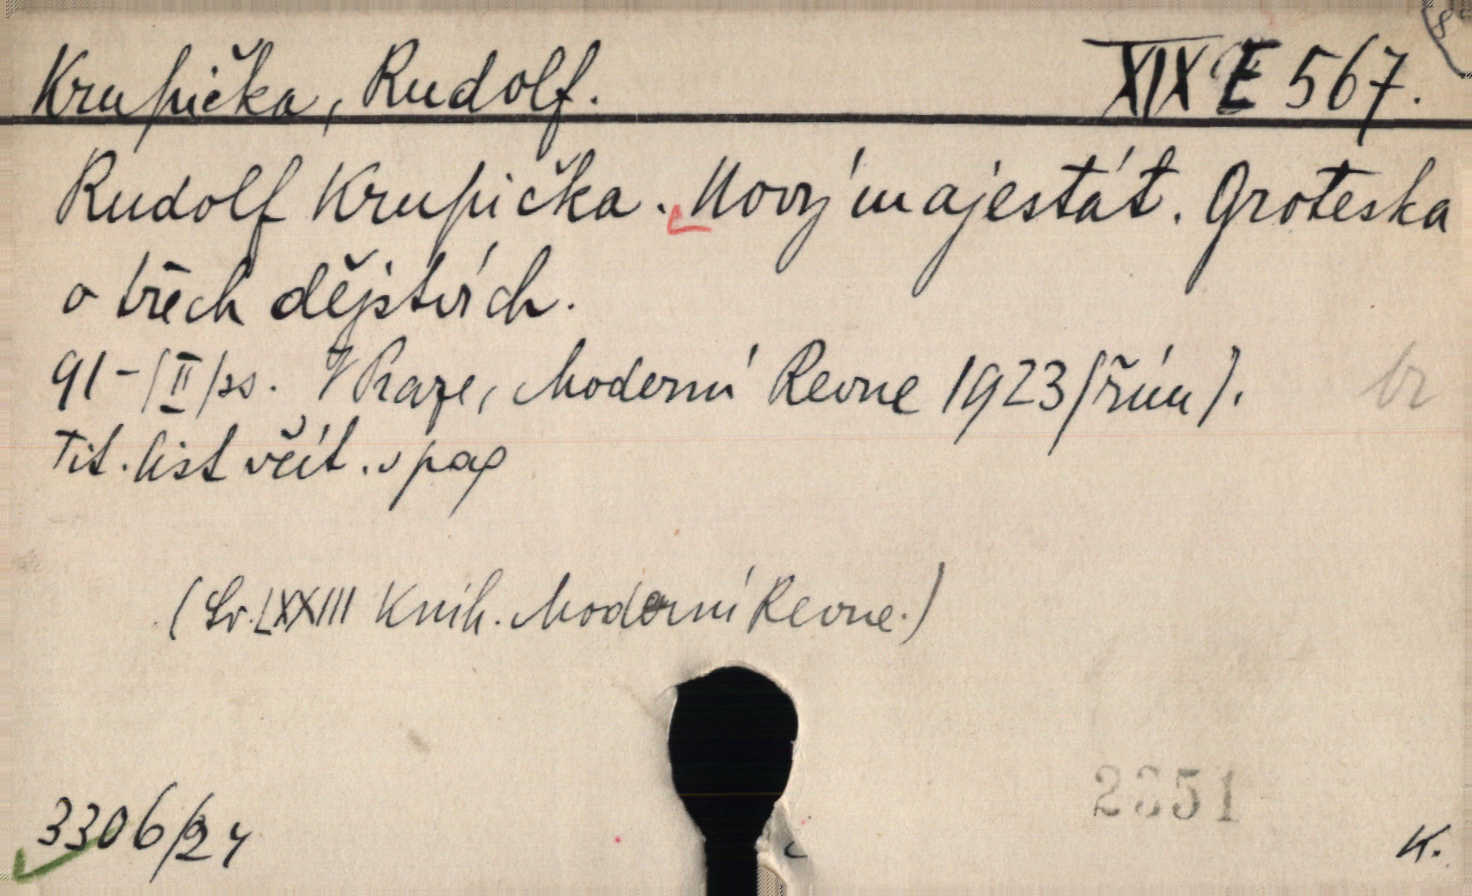 Krupička, Rudolf. XIX E 567.
Rudolf Krupička. Nový majestát. Groteska
o třech dějstvích.
91-/II/ss. V Praze, Moderní Revue 1923 (říjn).
Tit. list včít. v pag
(Sv. LXXIII Knih. Moderní Revue.)
2351
3306/24
K.